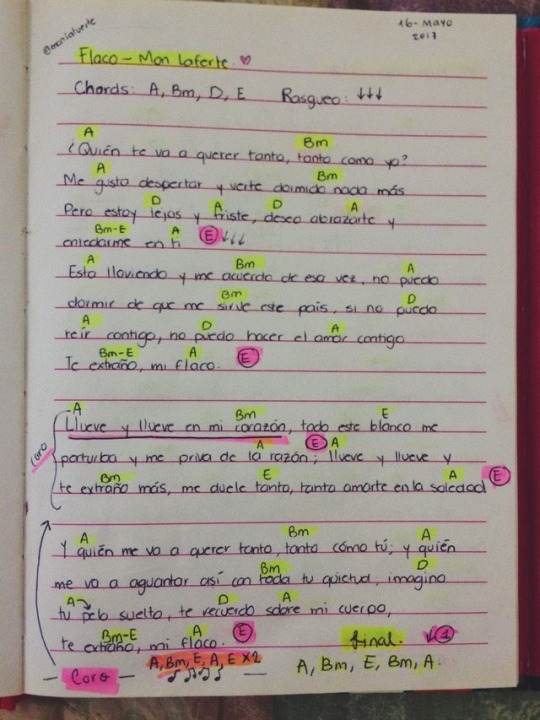 @moniafuerte
16-MAYO
2017
Flaco - Mon Laferte ♥
Chords: A, Bm, D, E Rasgueo: ↓↓↓
A Bm
¿Quién te va a querer tanto, tanto como yo?
A Bm
Me gusta despertar y verte dormido nada más
D A D A
Pero estoy lejos y triste, deseo abrazarte y
Bm-E A E ↓↓↓
enredarme en ti
A Bm A
Esta lloviendo y me acuerdo de esa vez, no puedo
Bm D
dormir de que me sirve este pais, si no puedo
A D A
reír contigo, no puedo hacer el amor contigo
Bm-E A E
Te extraño, mi flaco.
A Bm E
Llueve y llueve en mi corazón, todo este blanco me
A E A
perturba y me priva de la razón; llueve y llueve y
Bm E A E
te extraño más, me duele tanto, tanto amarte en la soledad
Coro
A Bm A
Y quién me va a querer tanto, tanto cómo tú; y quién
Bm D
me va a aguantar así con toda tu quietud, imagino
A D A
tu pelo suelto, te recuerdo sobre mi cuerpo,
Bm-E A E
te extraño, mi flaco.
Final. ↓1
— Coro — A, Bm, E, A, E x2 A, Bm, E, Bm, A.